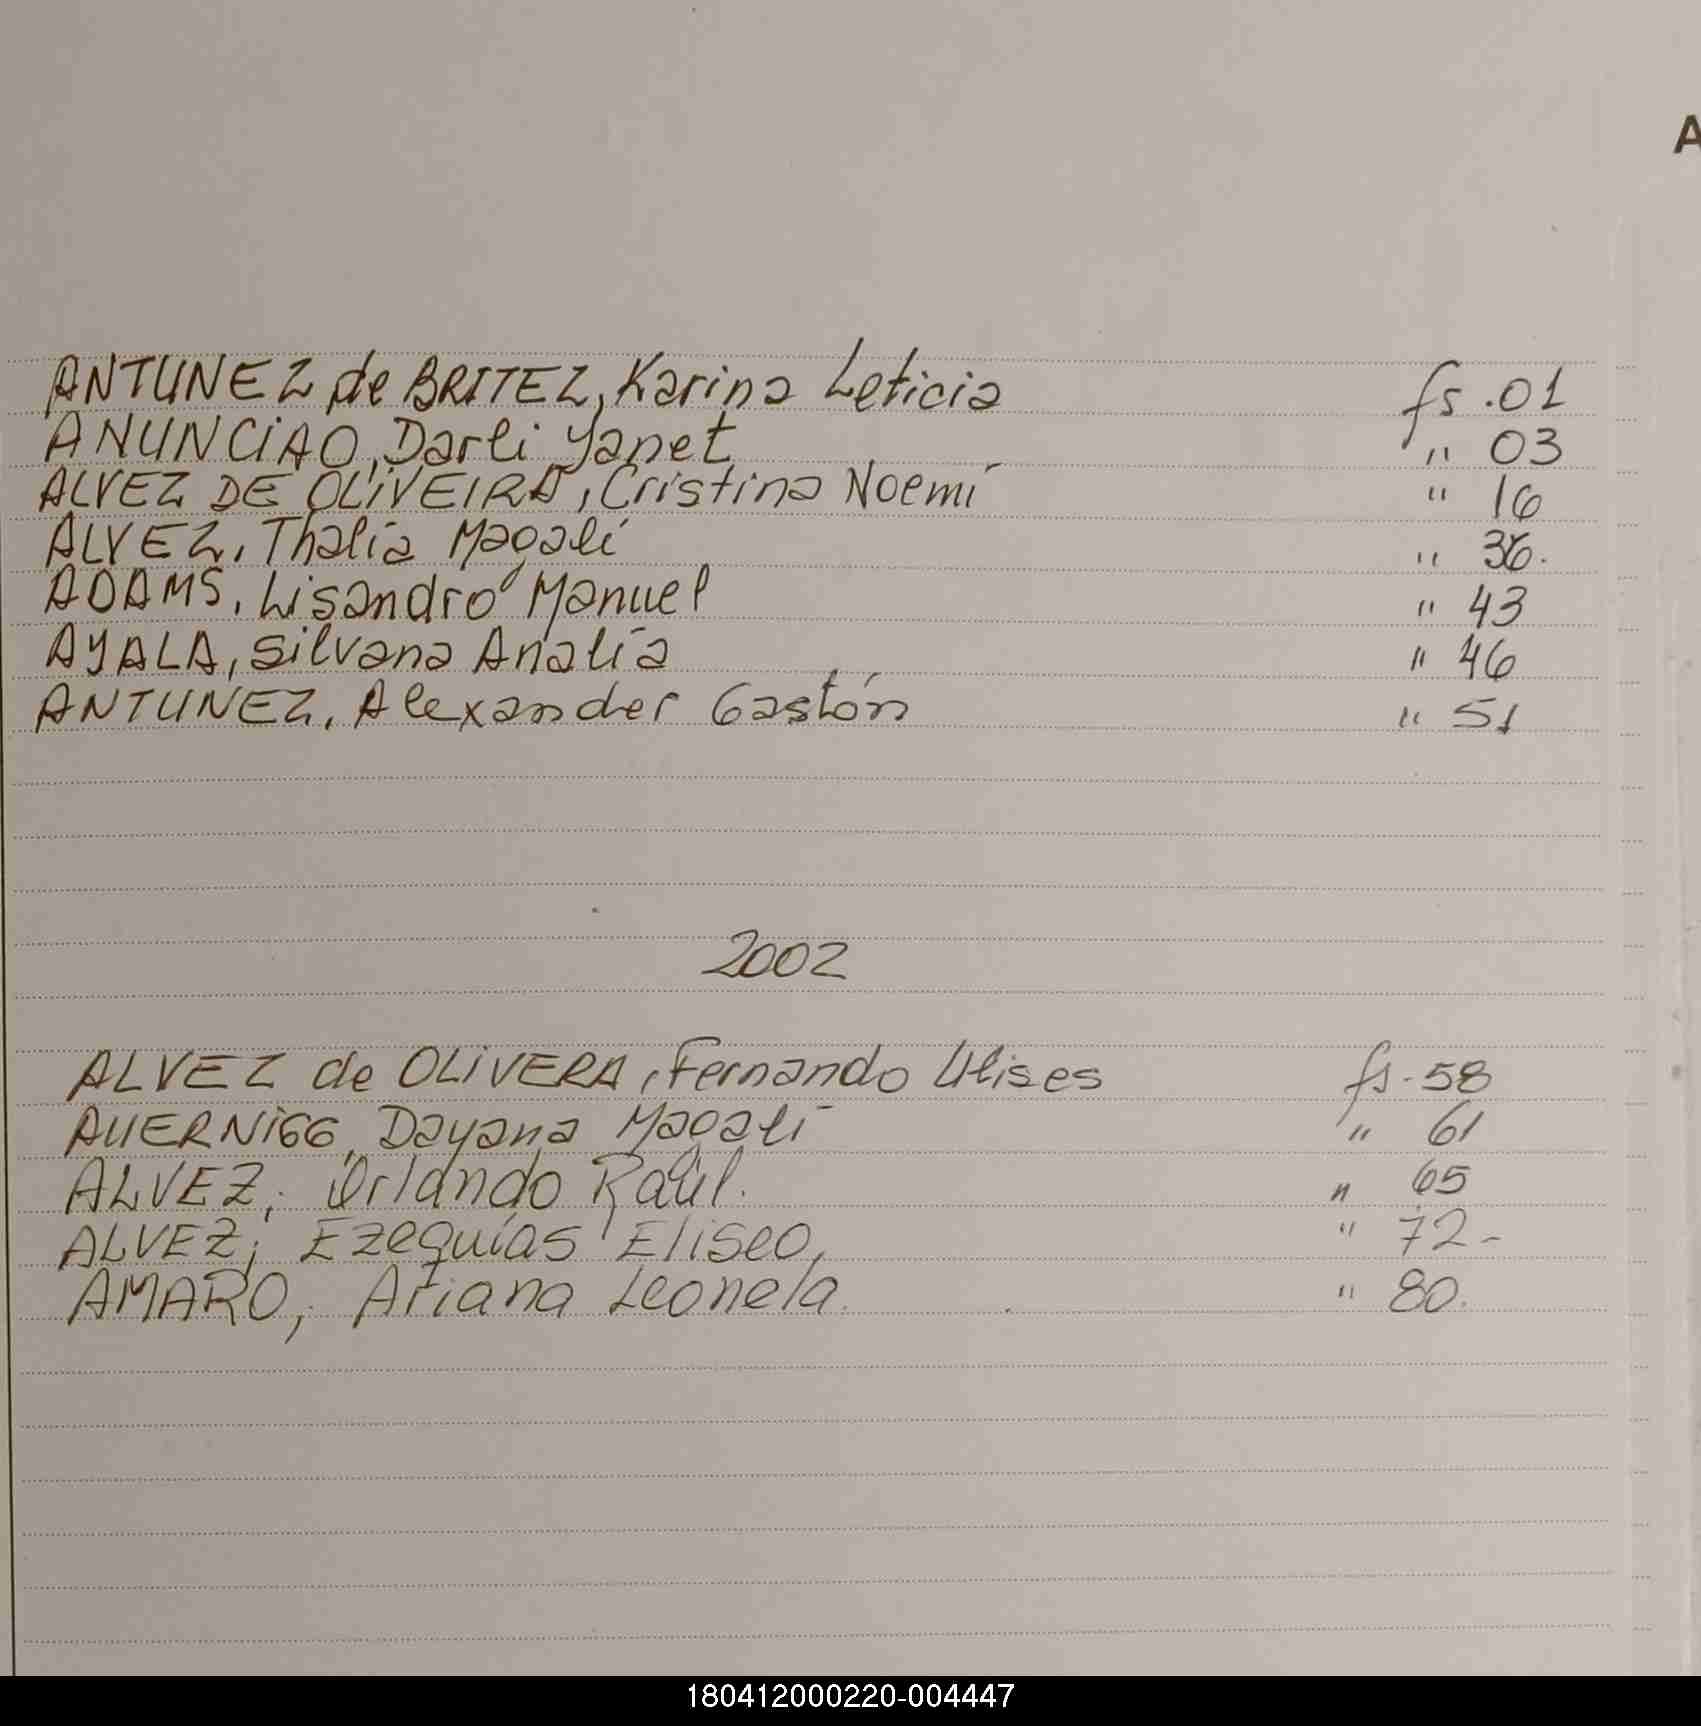 A
ANTUNEZ de BRITEZ, Karina Leticia fs. 01
ANUNCiAO, Darli Yanet " 03
ALVEZ DE OLiVEIRA, Cristina Noemí " 16
ALVEZ, Thalia Magalí " 36.
ADAMS, Lisandro Manuel " 43
AYALA, Silvana Analía " 46
ANTUNEZ, Alexander Gastón " 51
2002
ALVEZ de OLiVERA, Fernando Ulises fs. 58
AUERNiGG, Dayana Magalí " 61
ALVEZ; Orlando Raúl. " 65
ALVEZ; Ezequías Eliseo, " 72-
AMARO; Ariana Leonela. " 80.
180412000220-004447